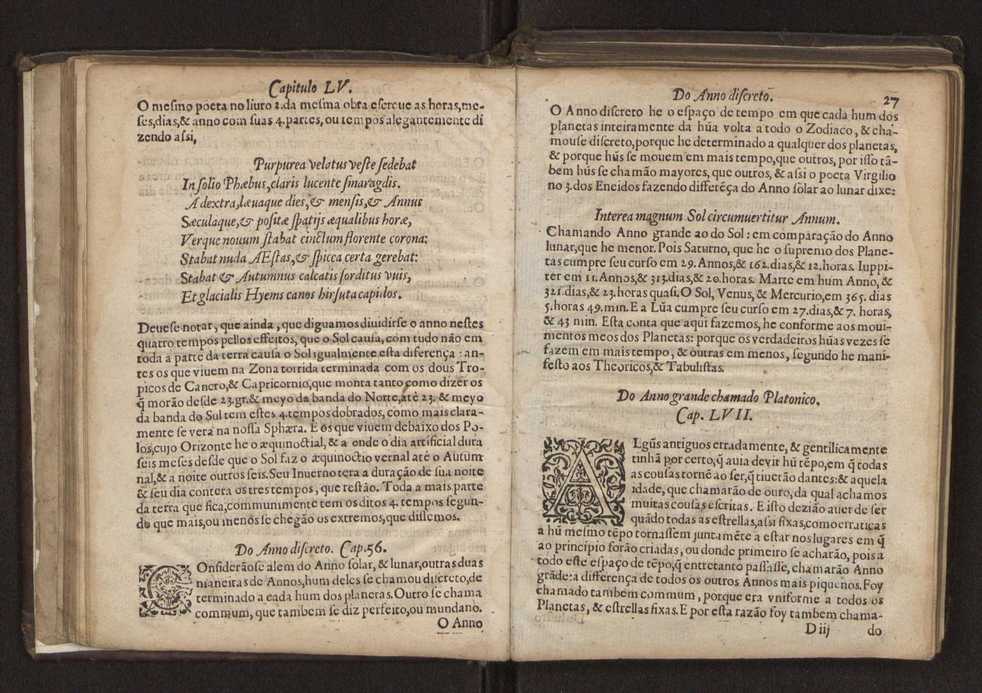 Capitulo LV.
O mesmo poeta no liuro 2. da mesma obra escreue as horas, me-
ses, dias, & anno com suas 4. partes, ou tempos alegantemente di
zendo assi,
Purpurea velatus veste sedebat
In solio Phæbus, claris lucente smaragdis.
A dextra, læuaque dies, & mensis, & Annus
Sæculaque, & positæ spatijs æqualibus horæ,
Verque nouum stabat cinctum florente corona:
Stabat nuda AEstas, & spicea certa gerebat:
Stabat & Autumnus calcatis sorditus vuis,
Et glacialis Hyems canos hirsuta capilos.
Deuese notar, que ainda, que diguamos diuidirse o anno nestes
quatro tempos pellos effeitos, que o Sol causa, com tudo não em
toda a parte da terra causa o Sol igualmente esta diferença: an-
tes os que viuem na Zona torrida terminada com os dous Tro-
picos de Cancro, & Capricornio, que monta tanto como dizer os
q̃ morão desde 23. gr. & meyo da banda do Norte, até 23. & meyo
da banda do Sul tem estes 4. tempos dobrados, como mais clara-
mente se verá na nossa Sphæra. E os que viuem debaixo dos Po-
los, cujo Orizonte he o æquinoctial, & a onde o dia artificial dura
seis meses desde que o Sol faz o æquinoctio vernal até o Autum
nal, & a noite outros seis. Seu Inuerno tera a duração de sua noite
& seu dia contera os tres tempos, que restão. Toda a mais parte
da terra que fica, communmente tem os ditos 4. tempos segun-
do que mais, ou menos se chegão os extremos, que dissemos.
Do Anno discreto. Cap. 56.
COnsiderãose alem do Anno solar, & lunar, outras duas
maneiras de Annos, hum deles se chamou discreto, de
terminado a cada hum dos planetas. Outro se chama
commum, que tambem se diz perfeito, ou mundano.
O Anno
Do Anno discreto.
27
O Anno discreto he o espaço de tempo em que cada hum dos
planetas inteiramente da hũa volta a todo o Zodiaco, & cha-
mouse discreto, porque he determinado a qualquer dos planetas,
& porque hũs se mouem em mais tempo, que outros, por isso tã-
bem hũs se chamão mayores, que outros, & assi o poeta Virgilio
no 3. dos Eneidos fazendo differẽça do Anno solar ao lunar dixe:
Interea magnum Sol circumuertitur Annum.
Chamando Anno grande ao do Sol: em comparação do Anno
lunar, que he menor. Pois Saturno, que he o supremo dos Plane-
tas cumpre seu curso em 29. Annos, & 162. dias, & 12. horas. Iuppi-
ter em 11. Annos, & 313. dias, & 20. horas. Marte em hum Anno, &
321. dias, & 23. horas quasi. O Sol, Venus, & Mercurio, em 365. dias
5. horas 49. min. E a Lũa cumpre seu curso em 27. dias, & 7. horas,
& 43 min. Esta conta que aqui fazemos, he conforme aos moui-
mentos meos dos Planetas: porque os verdadeiros hũas vezes se
fazem em mais tempo, & outras em menos, segundo he mani-
festo aos Theoricos, & Tabulistas.
Do Anno grande chamado Platonico.
Cap. LVII.
ALgũs antiguos erradamente, & gentilicamente
tinhã por certo, q̃ auia de vir hũ tẽpo, em q̃ todas
as cousas tornẽ ao ser, q̃ tiuerão dantes: & aquela
idade, que chamarão de ouro, da qual achamos
muitas cousas escritas. E isto dezião auer de ser
quãdo todas as estrellas, assi fixas, como erraticas
a hũ mesmo tẽpo tornassem juntamẽte a estar nos lugares em q̃
ao principio forão criadas, ou donde primeiro se acharão, pois a
todo este espaço de tẽpo, q̃ entretanto passasse, chamarão Anno
grãde: a differença de todos os outros Annos mais piquenos. Foy
chamado tambem commum, porque era vniforme a todos os
Planetas, & estrellas fixas. E por esta razão foy tambem chama-
D iij
do